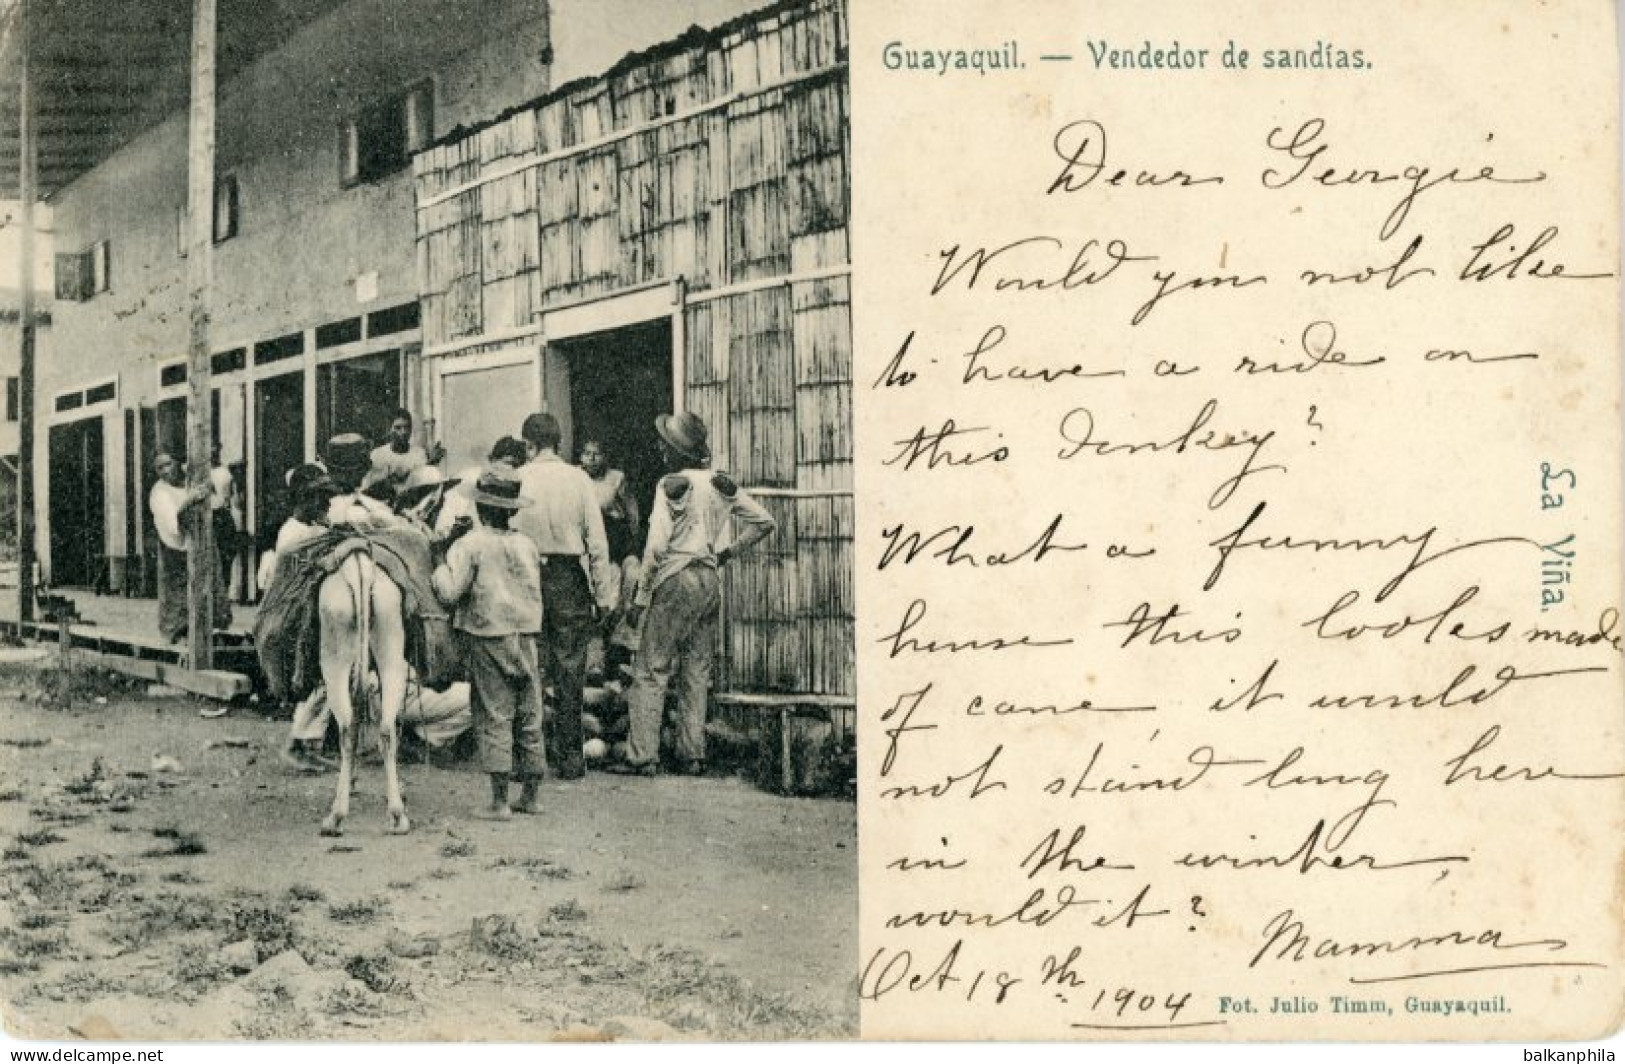 Guayaquil. — Vendedor de sandías.
Dear Georgie
Would you not like
to have a ride on
this donkey?
What a funny
house this looks made
of cane, it would
not stand long here
in the winter,
would it?
Mamma
Oct 18th 1904
La Viña.
Fot. Julio Timm, Guayaquil.
balkanphila